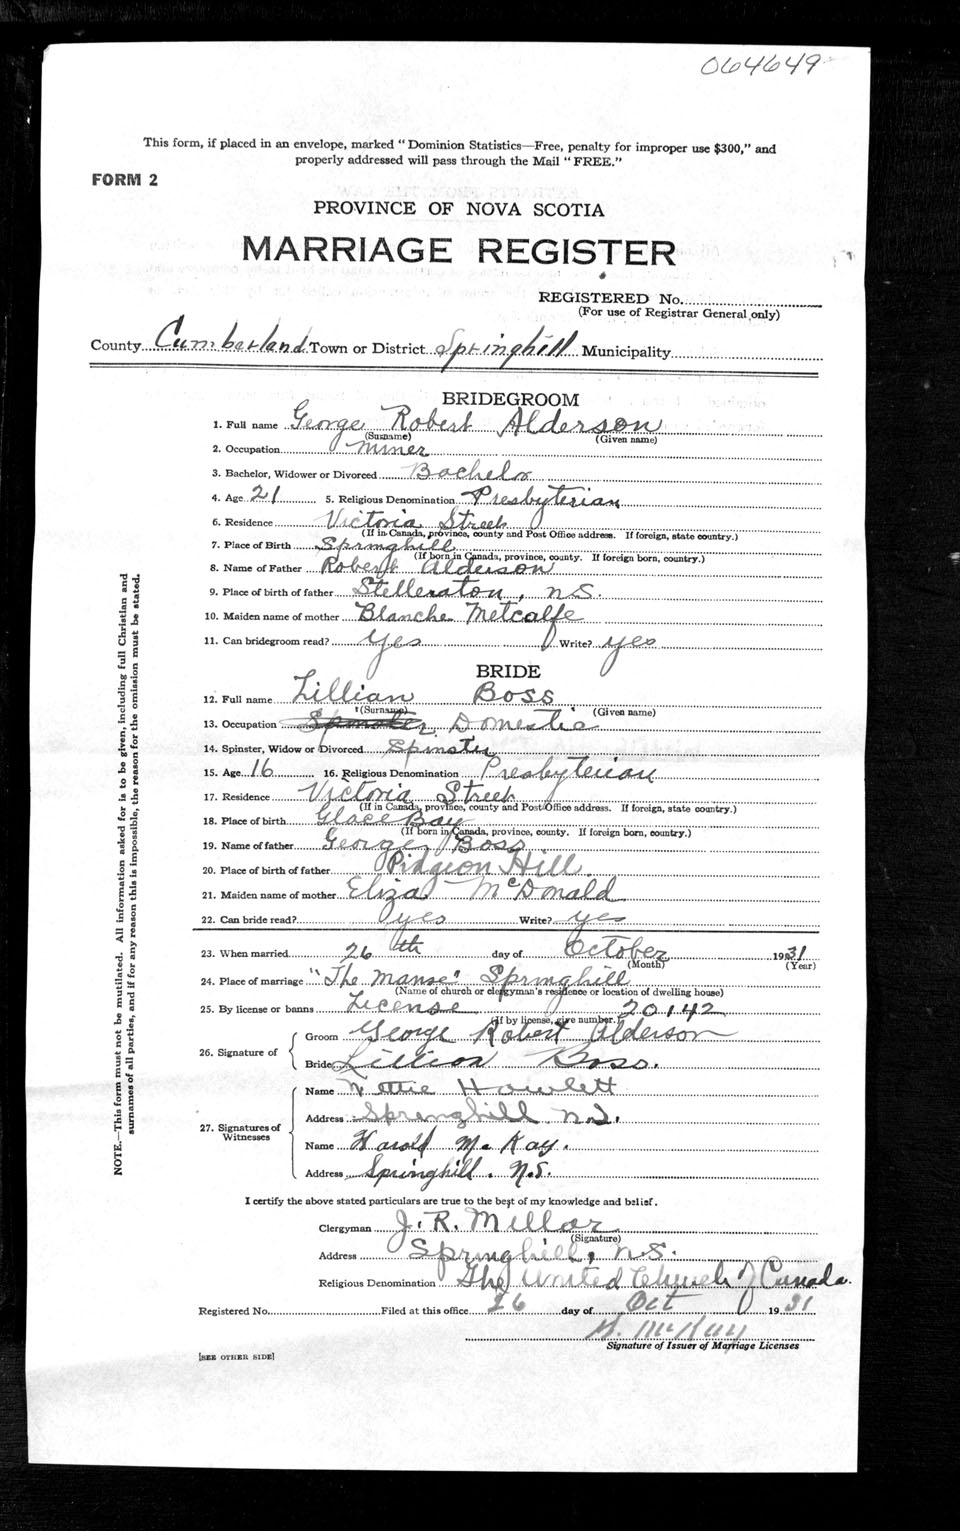 064649
This form, if placed in an envelope, marked "Dominion Statistics—Free, penalty for improper use $300," and
properly addressed will pass through the Mail "FREE."
FORM 2
PROVINCE OF NOVA SCOTIA
MARRIAGE REGISTER
REGISTERED No.
(For use of Registrar General only)
County Cumberland Town or District Springhill Municipality
BRIDEGROOM
1. Full name George Robert Alderson
(Surname) (Given name)
2. Occupation miner
3. Bachelor, Widower or Divorced Bachelor
4. Age 21 5. Religious Denomination Presbyterian
6. Residence Victoria Street
(If in Canada, province, county and Post Office address. If foreign, state country.)
7. Place of Birth Springhill
(If born in Canada, province, county. If foreign born, country.)
8. Name of Father Robert Alderson
9. Place of birth of father Stelleraton, N.S.
10. Maiden name of mother Blanche Metcalfe
11. Can bridegroom read? yes Write? yes
BRIDE
12. Full name Lillian Boss
(Surname) (Given name)
13. Occupation Spinster Domestic
14. Spinster, Widow or Divorced Spinster
15. Age 16 16. Religious Denomination Presbyterian
17. Residence Victoria Street
(If in Canada, province, county and Post Office address. If foreign, state country.)
18. Place of birth Glace Bay
(If born in Canada, province, county. If foreign born, country.)
19. Name of father George Boss
20. Place of birth of father Pidgeon Hill
21. Maiden name of mother Eliza McDonald
22. Can bride read? yes Write? yes
23. When married 26th day of October 1931
(Month) (Year)
24. Place of marriage "The Manse" Springhill
(Name of church or clergyman's residence or location of dwelling house)
25. By license or banns License 20142
(If by license, give number.)
26. Signature of Groom George Robert Alderson
Bride Lillian Boss.
27. Signatures of Witnesses Name Nettie Howlett
Address Springhill N.S.
Name Harold McKay.
Address Springhill. N.S.
I certify the above stated particulars are true to the best of my knowledge and belief.
Clergyman J. R. Millar
(Signature)
Address Springhill, N.S.
Religious Denomination The United Church of Canada.
Registered No. Filed at this office 26 day of Oct 1931
McKay
Signature of Issuer of Marriage Licenses
[SEE OTHER SIDE]
NOTE.—This form must not be mutilated. All information asked for is to be given, including full Christian and
surnames of all parties, and if for any reason this is impossible, the reason for the omission must be stated.